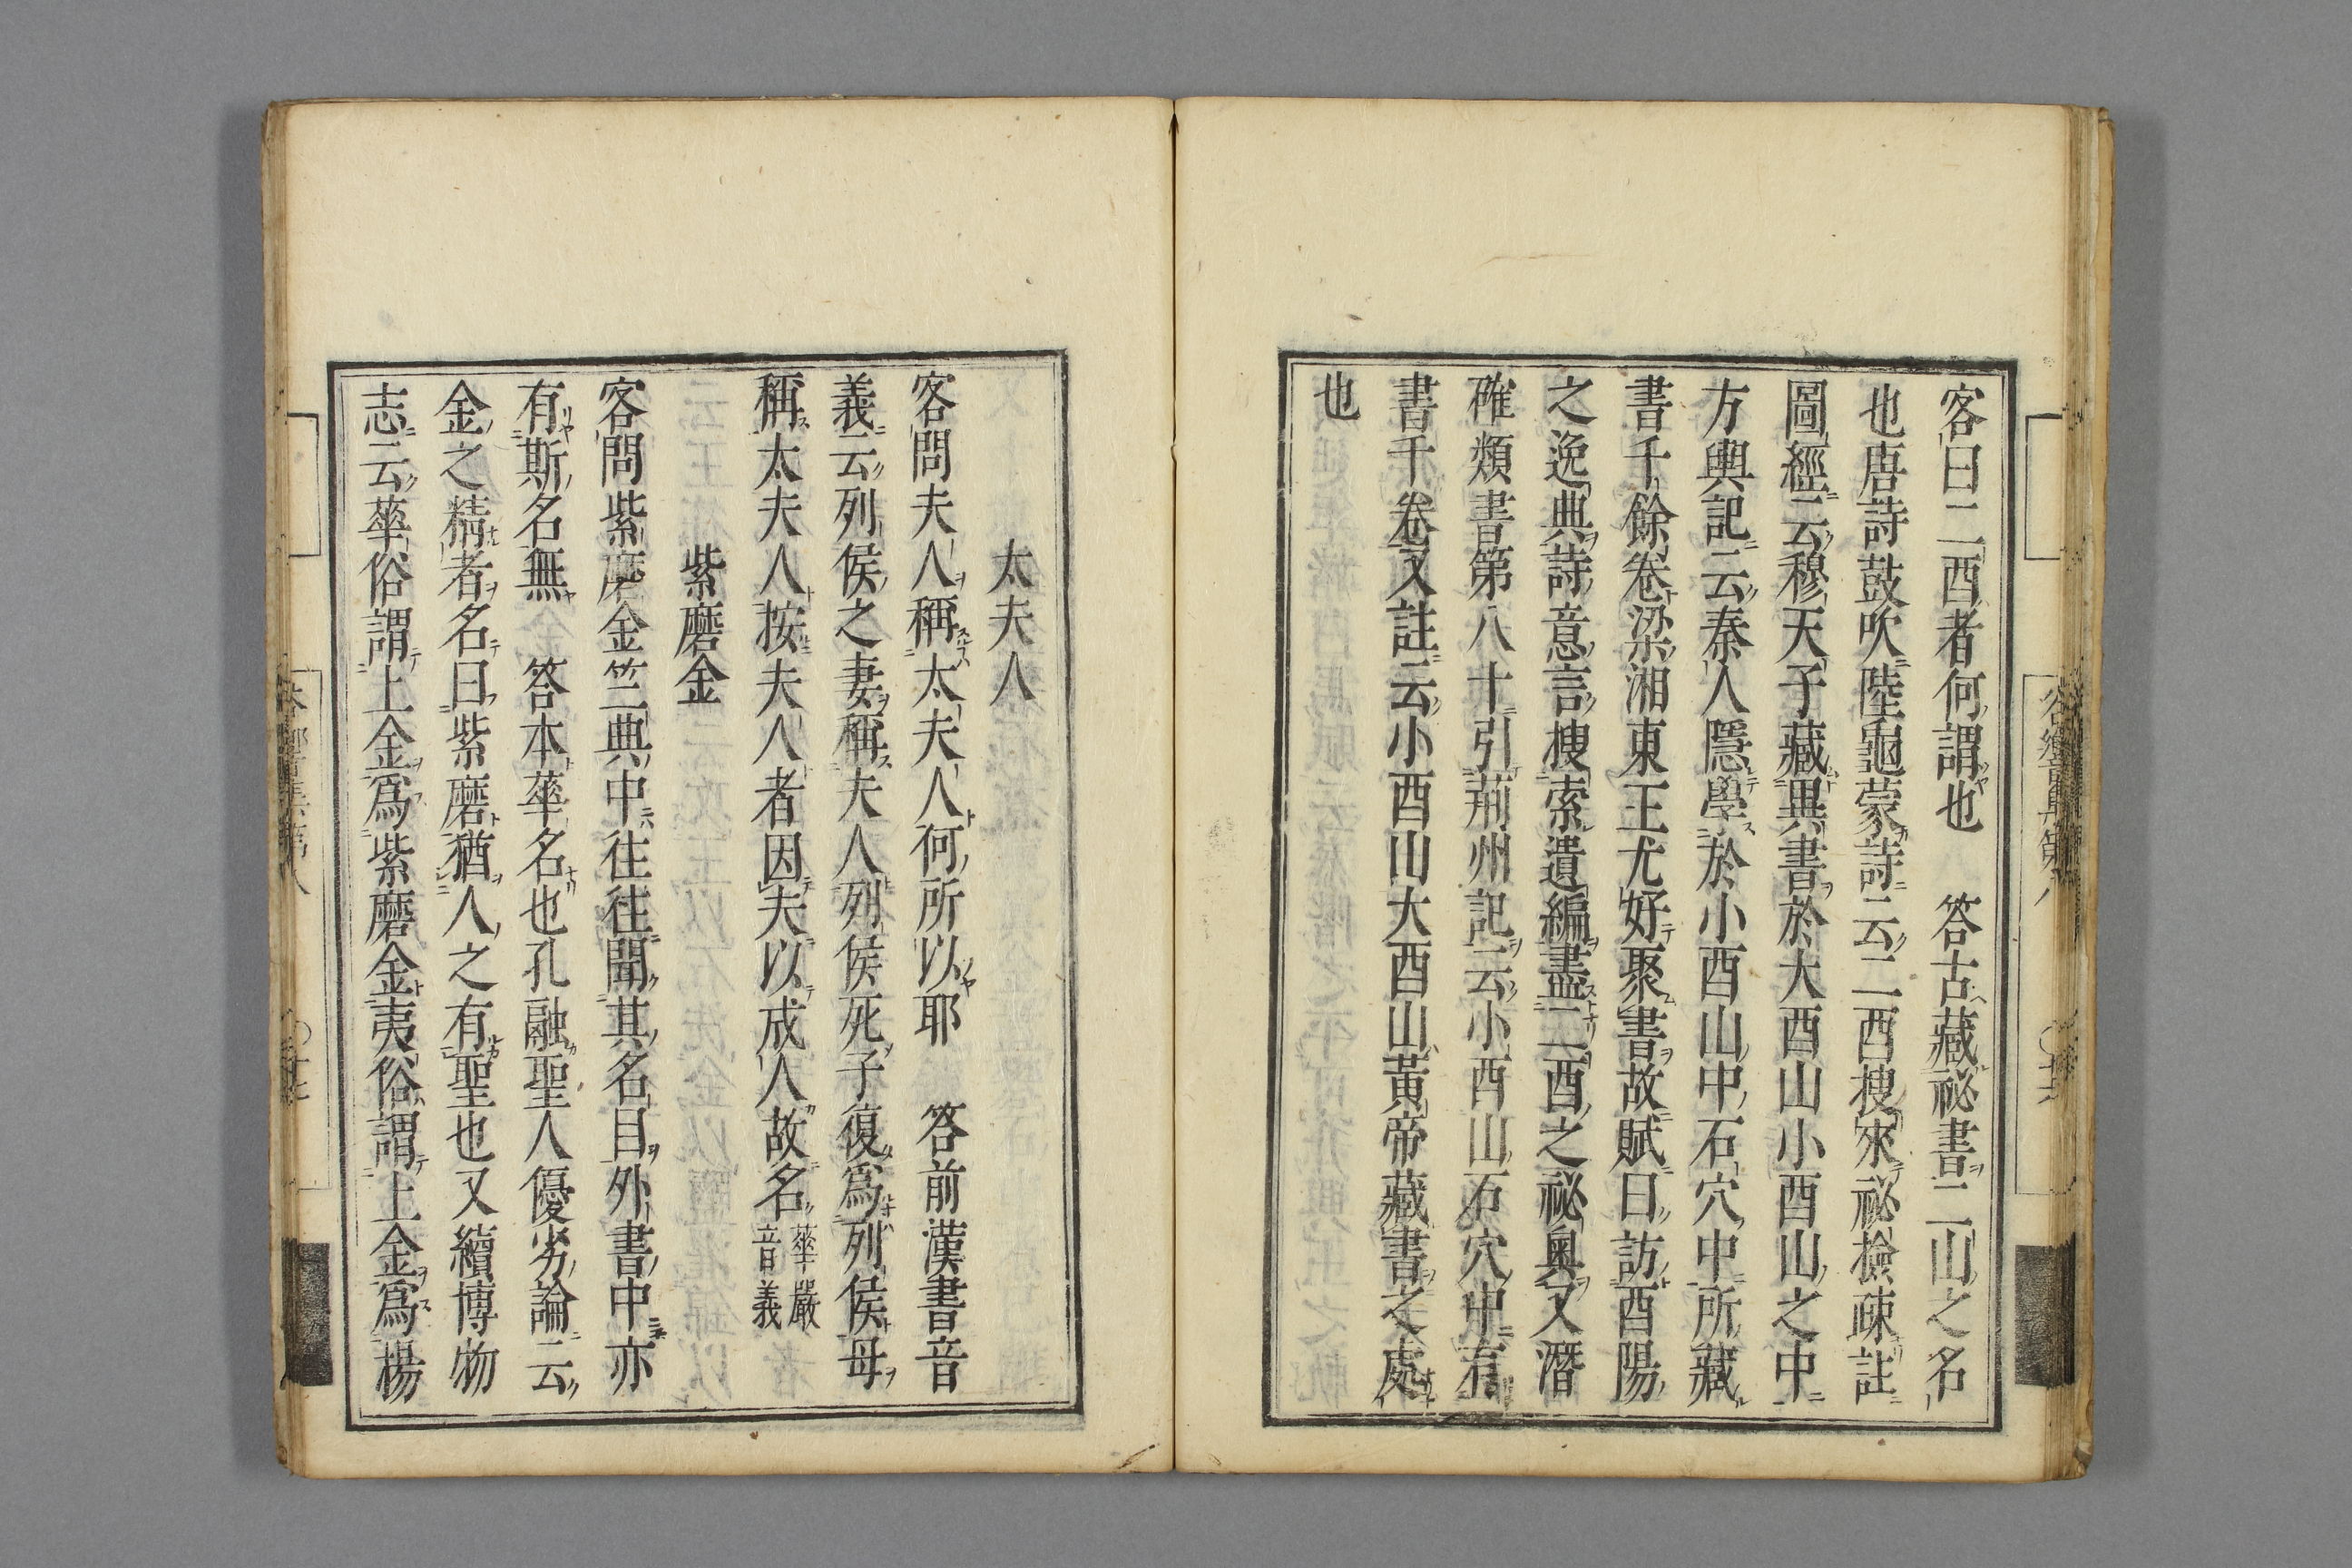 客曰二酉者何謂也　答古藏祕書二山之名
也唐詩鼓吹陸龜蒙詩云二酉搜來祕檢疎註
圖經云穆天子藏異書於大酉山小酉山之中
方輿記云秦人隱學於小酉山中石穴中所藏
書千餘卷梁湘東王尤好聚書故賦曰訪酉陽
之逸典詩意言搜索遺編盡二酉之祕奧又潛
確類書第八十引荊州記云小酉山石穴中有
書千卷又註云小酉山大酉山黃帝藏書之處
也
太夫人
客問夫人稱太夫人何所以耶　答前漢書音
義云列侯之妻稱夫人列侯死子復爲列侯母
稱太夫人按夫人者因夫以成人故名華嚴音義
紫磨金
客問紫磨金竺典中往往聞其名目外書中亦
有斯名無　答本華名也孔融聖人優劣論云
金之精者名曰紫磨猶人之有聖也又續博物
志云華俗謂上金爲紫磨金夷俗謂上金爲楊
谷響集第八